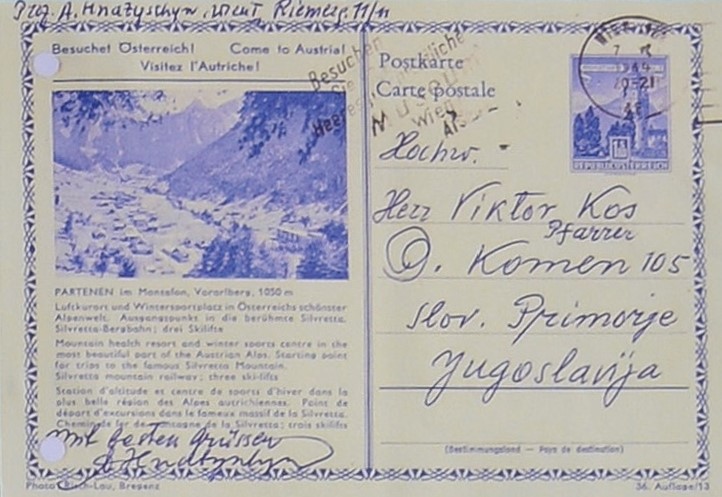 Prof. A. Hnatyschyn, Wien I, Riemerg. 11/11
Besuchet Österreich! Come to Austria!
Visitez l'Autriche!
Postkarte
Carte postale
Besuchen
Sie
Museum
Wien
REPUBLIK ÖSTERREICH
Hochw.
Herr Viktor Kos
Pfarrer
O. Komen 105
Slov. Primorje
Jugoslavija
PARTENEN im Montafon, Vorarlberg, 1050 m
Luftkurort und Wintersportplatz in Österreichs schönster
Alpenwelt. Ausgangspunkt in die berühmte Silvretta.
Silvretta-Bergbahn; drei Skilifte
Mountain health resort and winter sports centre in the
most beautiful part of the Austrian Alps. Starting point
for trips to the famous Silvretta Mountain.
Silvretta mountain railway; three ski-lifts
Station d'altitude et centre de sports d'hiver dans la
plus belle région des Alpes autrichiennes. Point de
départ d'excursions dans le fameux massif de la Silvretta.
Chemin de fer de montagne de la Silvretta; trois skilifts
Mit besten Grüssen
A Hnatyschyn
(Bestimmungsland — Pays de destination)
Photo: Risch-Lau, Bregenz
36. Auflage/13